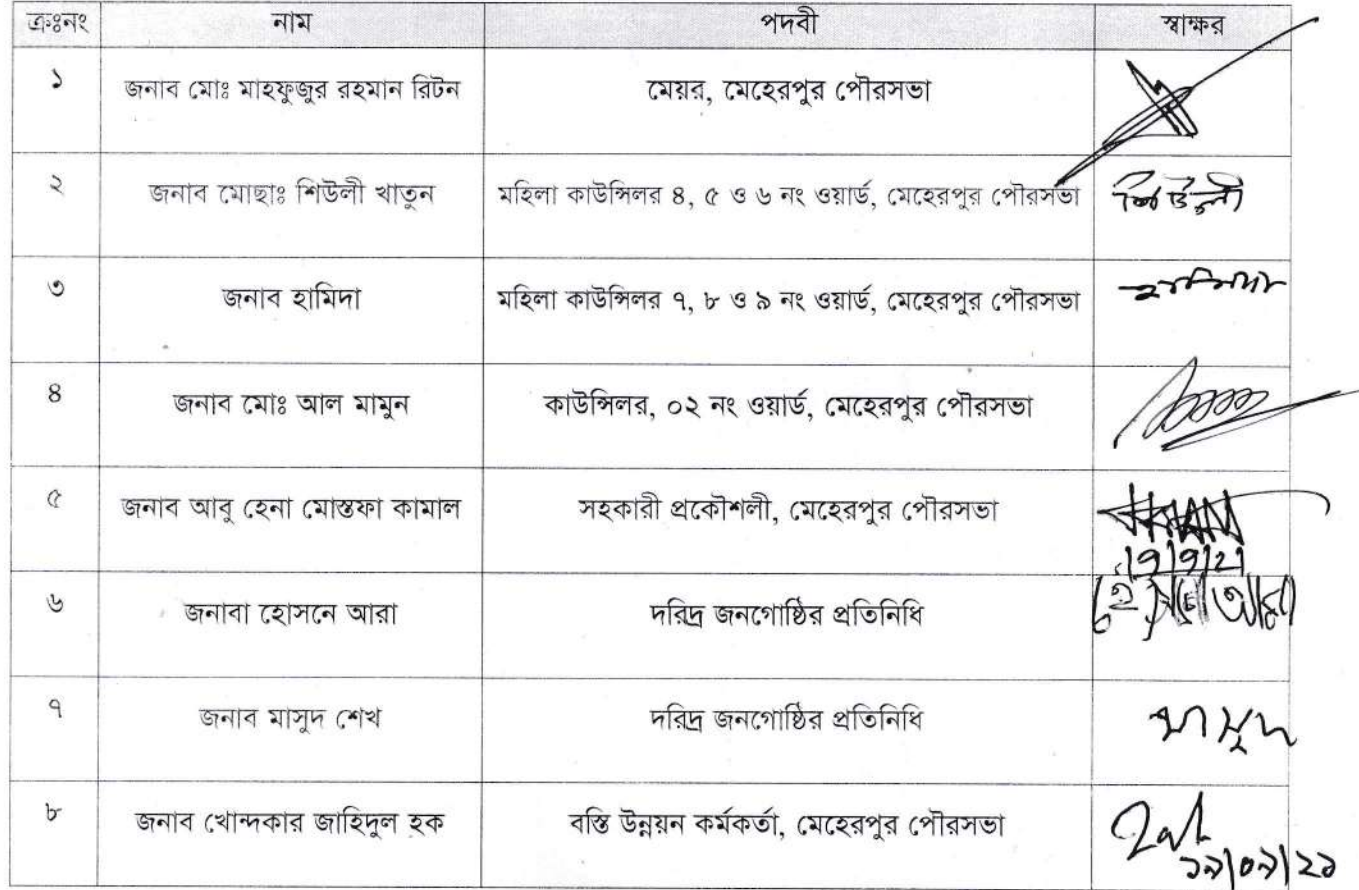 ক্রঃনং নাম পদবী স্বাক্ষর
১ জনাব মোঃ মাহফুজুর রহমান রিটন মেয়র, মেহেরপুর পৌরসভা
২ জনাব মোছাঃ শিউলী খাতুন মহিলা কাউন্সিলর ৪, ৫ ও ৬ নং ওয়ার্ড, মেহেরপুর পৌরসভা শিউলী
৩ জনাব হামিদা মহিলা কাউন্সিলর ৭, ৮ ও ৯ নং ওয়ার্ড, মেহেরপুর পৌরসভা হামিদা
৪ জনাব মোঃ আল মামুন কাউন্সিলর, ০২ নং ওয়ার্ড, মেহেরপুর পৌরসভা
৫ জনাব আবু হেনা মোস্তফা কামাল সহকারী প্রকৌশলী, মেহেরপুর পৌরসভা
19/9/21
৬ জনাবা হোসনে আরা দরিদ্র জনগোষ্ঠির প্রতিনিধি
৭ জনাব মাসুদ শেখ দরিদ্র জনগোষ্ঠির প্রতিনিধি মাসুদ
৮ জনাব খোন্দকার জাহিদুল হক বস্তি উন্নয়ন কর্মকর্তা, মেহেরপুর পৌরসভা
১৯/০৯/২১